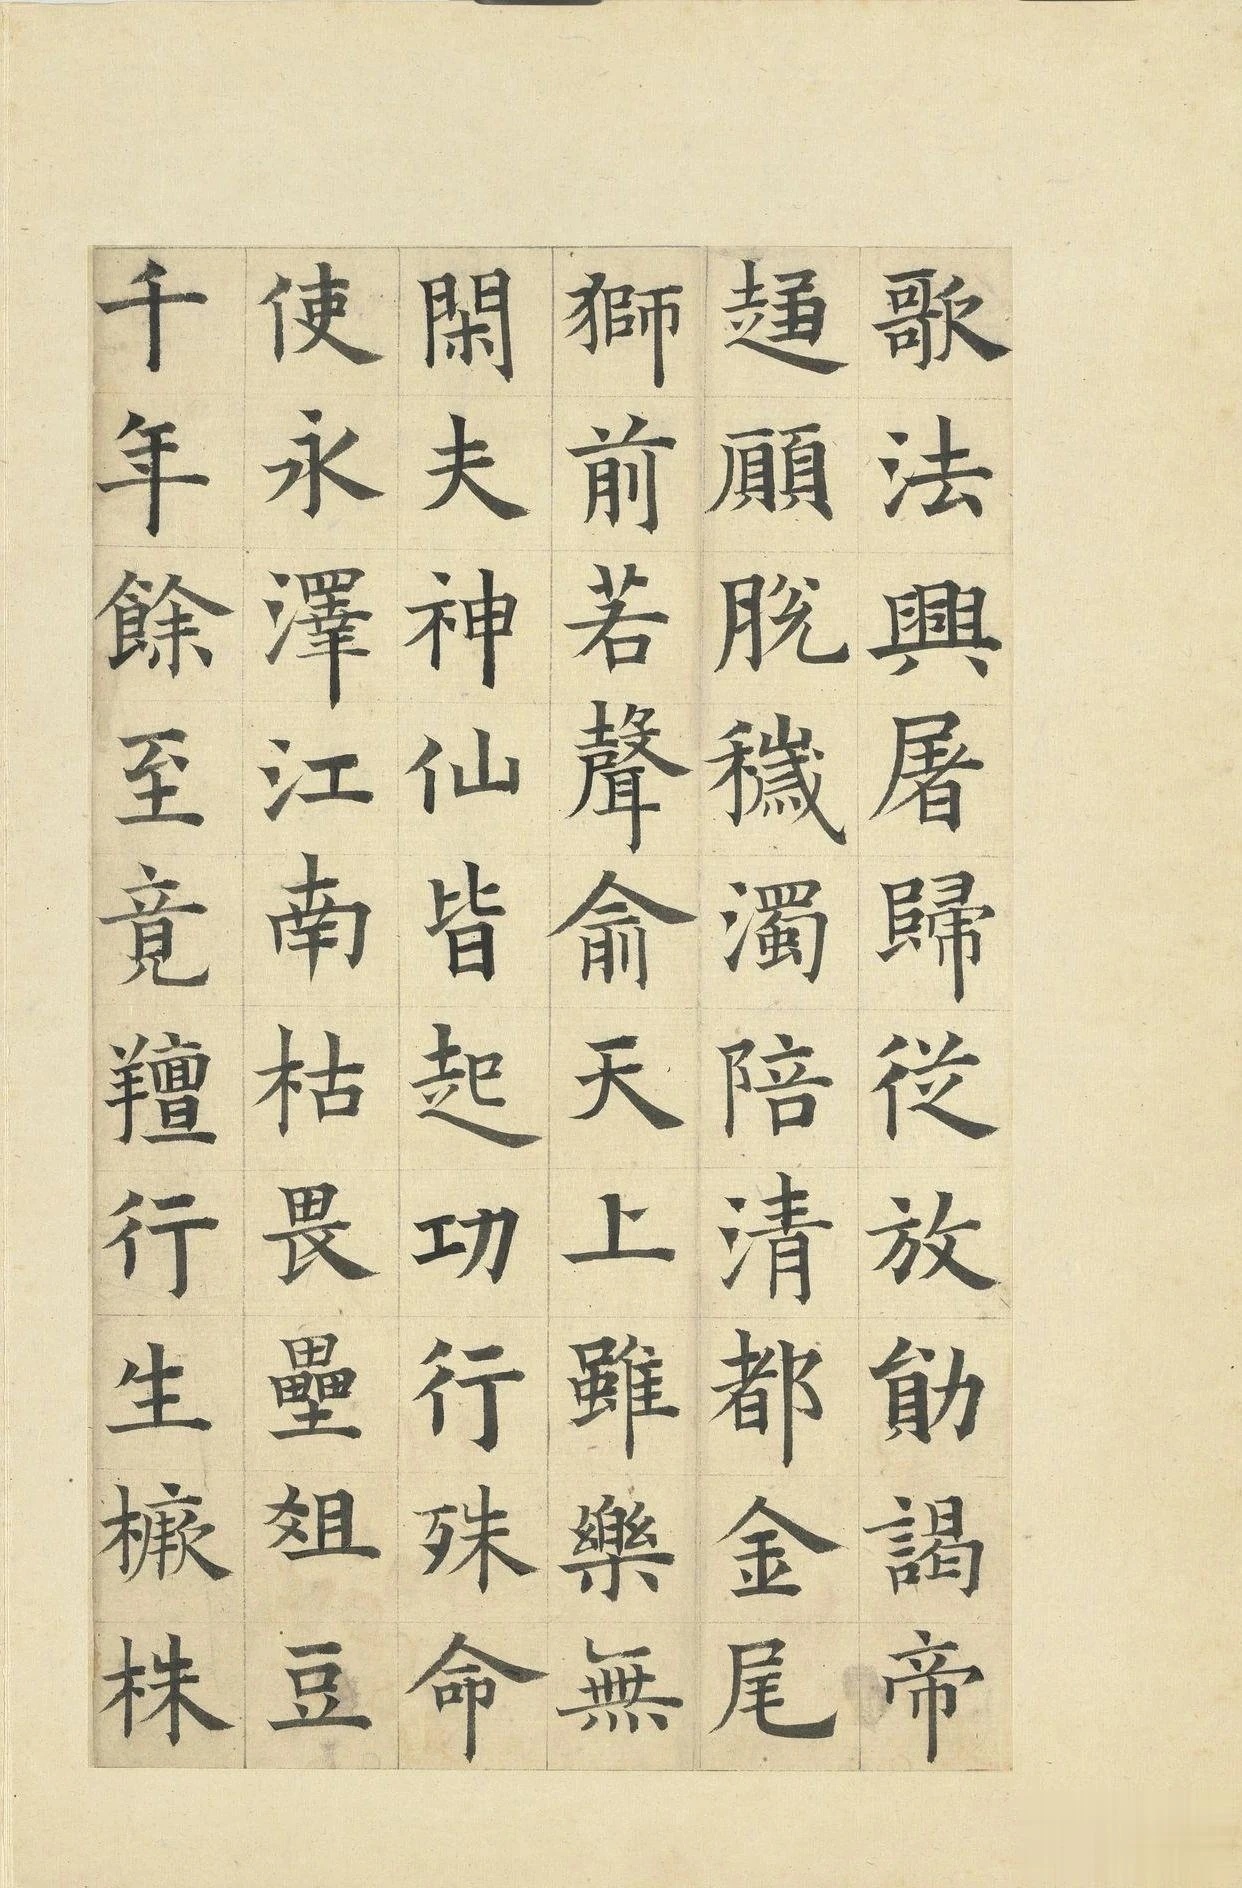 歌法興屠歸從放勛謁帝
趨願脫穢濁陪清都金尾
獅前若聲俞天上雖樂無
閑夫神仙皆起功行殊命
使永澤江南枯畏壘爼豆
千年餘至竟羶行生橛株